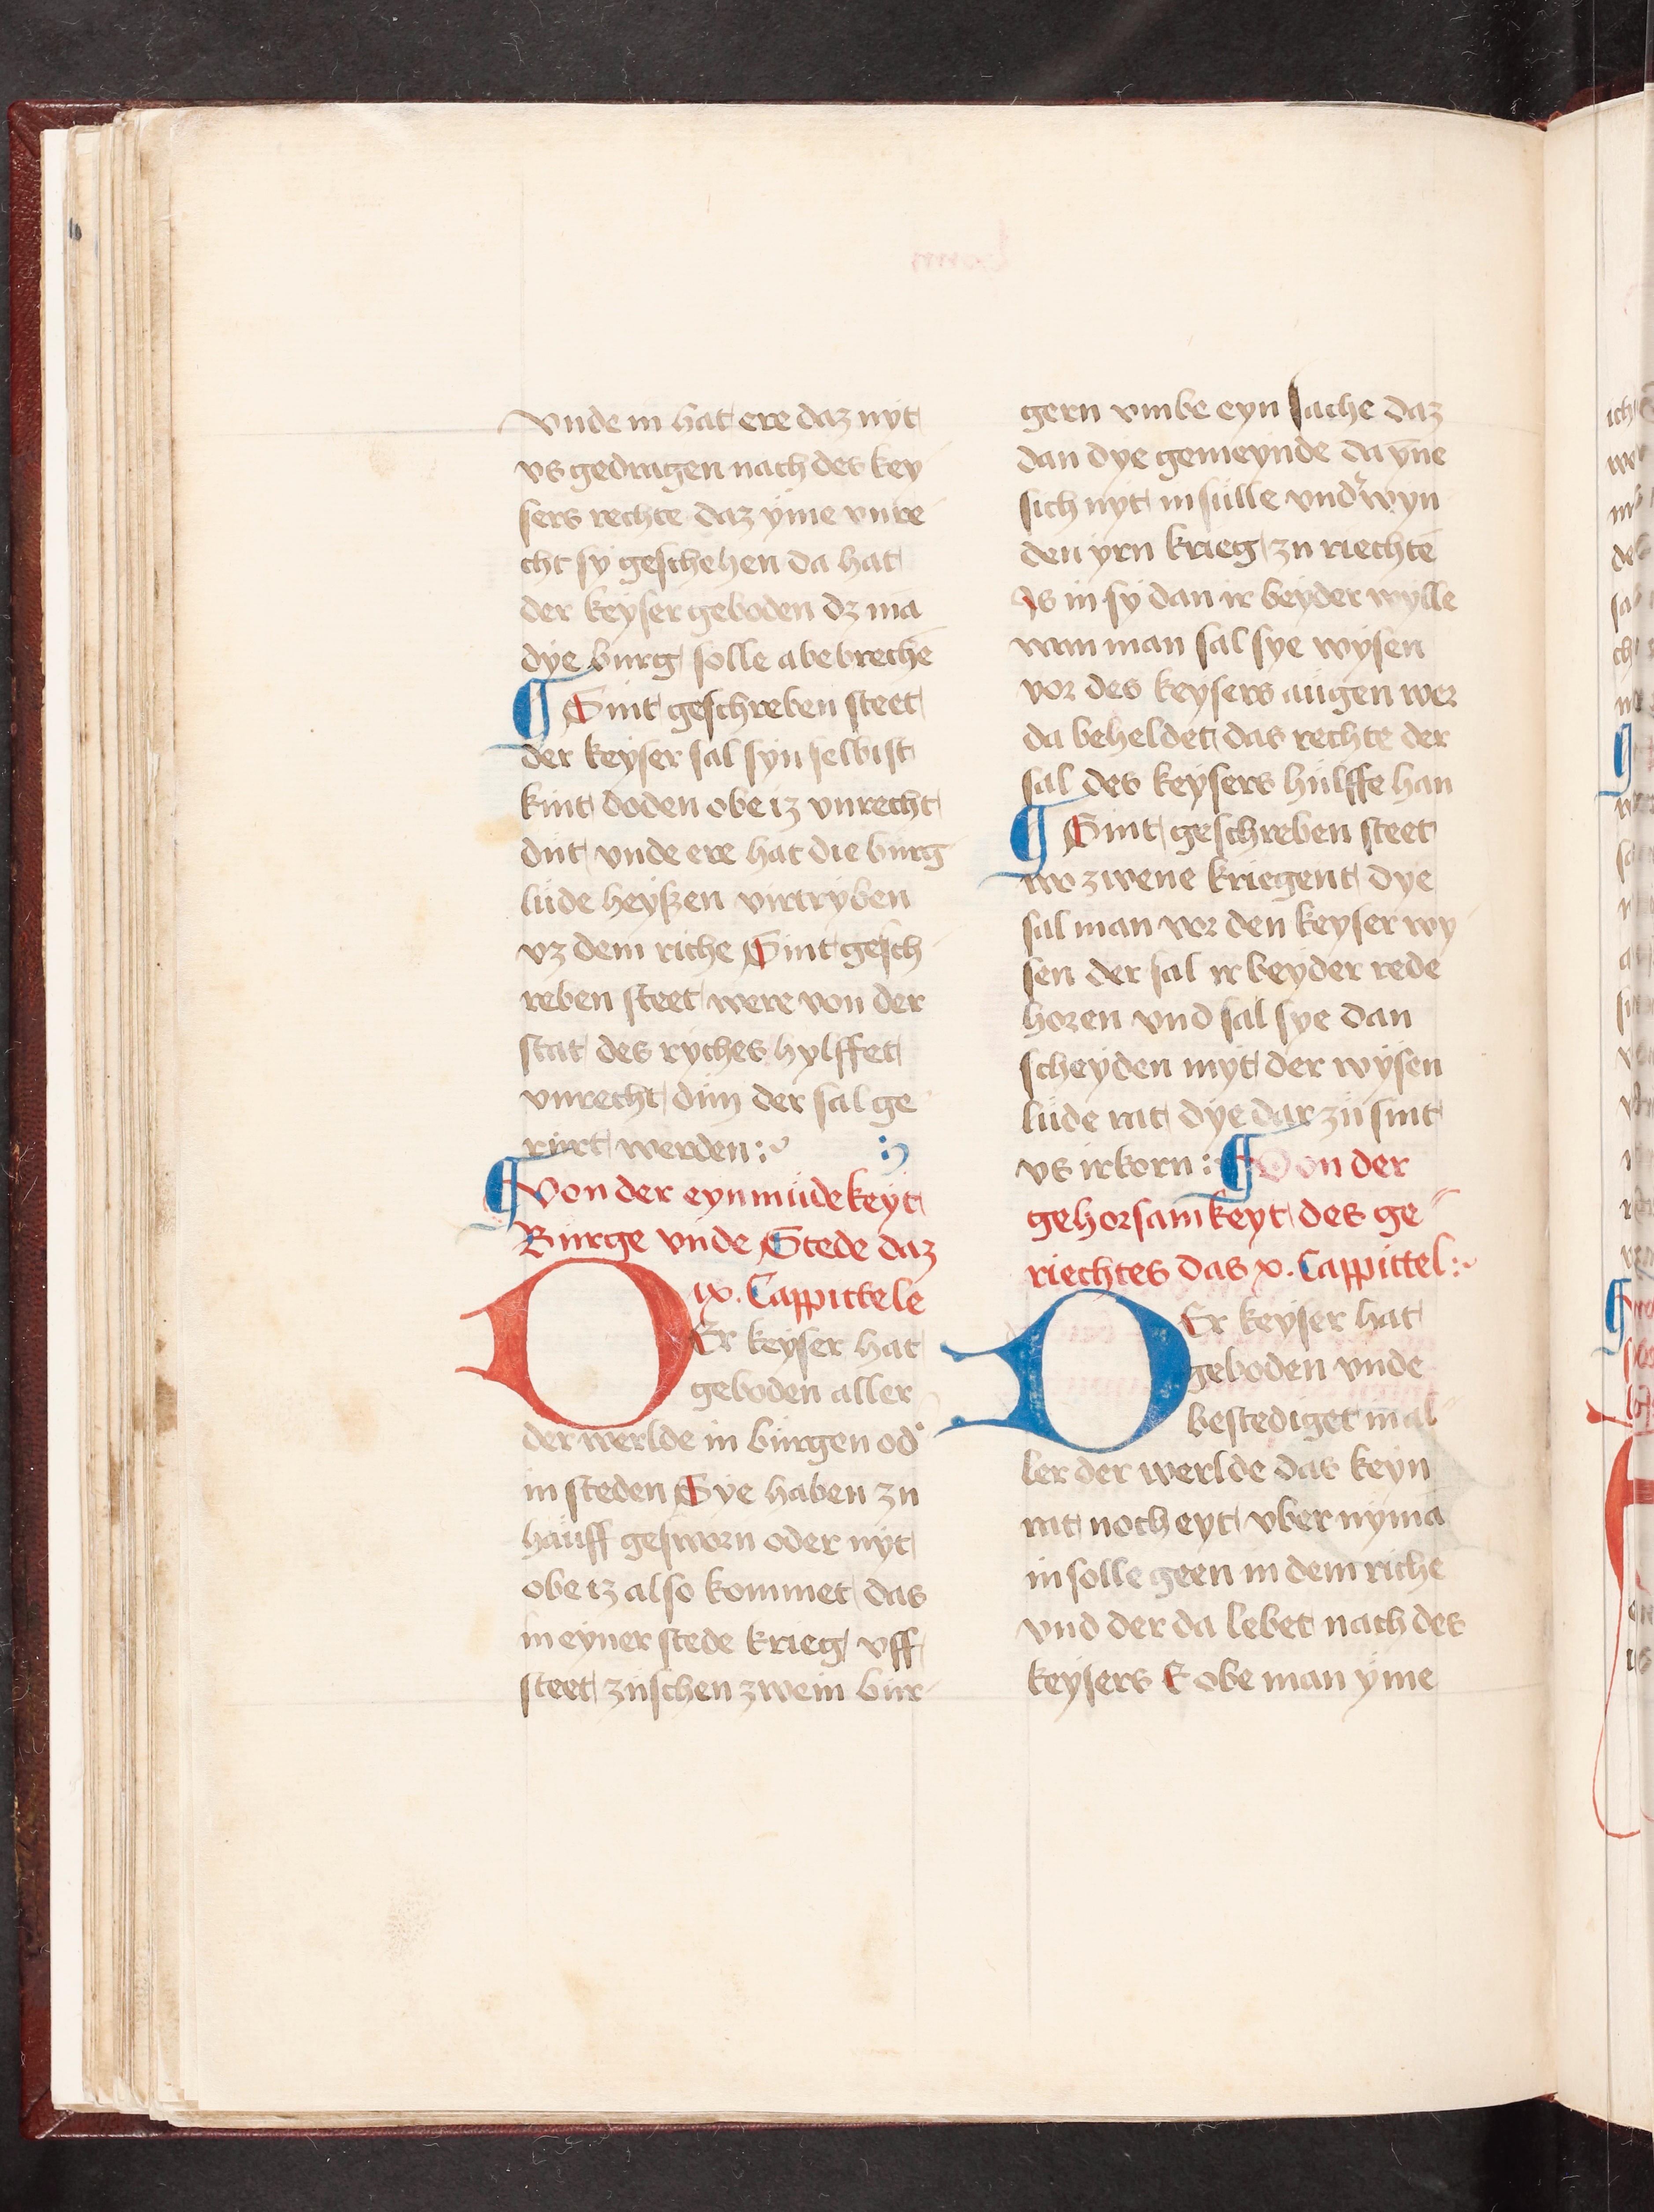 vnde in hat ere daz nyt
vs gedragen nach des key
sers rechte daz ẏme vnre
cht sy geschehen da hat
der keyser geboden dz mā
dye burg solle abebrechē
¶ Sint geschreben steet
der keyser sal syn selbist
kint doden obe iz vnrecht
dut vnde ere hat die burg
lude heyßen virtryben
vz dem riche Sint gesch
reben steet were von der
stat des ryches hylffet
vnrecht dun der sal ge
rurt werden :~
¶ Von der eynmudekeyt
Burge vnde Stede daz
ix. Cappittele
DEr keyser hat
geboden aller
der werlde in burgen od᾽
in steden Sye haben zu
hauff gesworn oder nyt
obe iz also kommet das
in eyner stede krieg vff
steet zuschen zwein bur
gern vmbe eyn sache daz
dan dye gemeynde da ẏne
sich nyt in sulle vnd᾽wyn
den yrn krieg zu riechtē
Is in sy dan ir beyder wylle
wan man sal sye wysen
vor des keysers augen wer
da beheldet das rechte der
sal des keysers hulffe han
¶ Sint geschreben steet
wo zwene kriegent dye
sal man vor den keyser wy
sen der sal ir beyder rede
horen vnd sal sye dan
scheyden myt der wysen
lude rat dye dar zu sint
vs irkorn : ¶ Von der
gehorsamkeyt des ge
riechtes das x. Cappittel :~
DEr keyser hat
geboden vnde
bestediget in al
ler der werlde das keyn
rat noch eyt vber nymā
in solle geen in dem riche
vnd der da lebet nach des
keysers E obe man ẏme